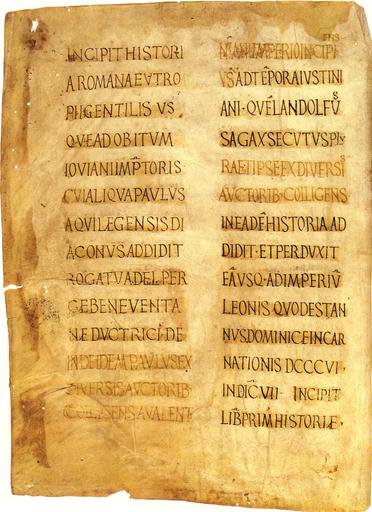 INCIPIT HISTORI
A ROMANA EVTRO
PII GENTILIS VS
QVE AD OBITVM
IOVIANI IMPTORIS
CVI ALIQVA PAVLVS
AQVILEGENSIS DI
ACONVS ADDIDIT
ROGATV ADELPER
GE BENEVENTA
NE DVCTRICI DE
INDE IDEM PAVLVS EX
DIVERSIS AVCTORIB
COLLIGENS A VALENT
NIANI IMPERIO INCIPI
ENS
VSAD TĒPORA IVSTINI
ANI · QVĒ LANDOLFŨS
SAGAX SECVTVS PLV
RA ET IPSE EX DIVERSIS
AVCTORIB · COLLIGENS
IN EADĒ HISTORIA AD
DIDIT · ET PERDVXIT
EĀ VSQ · AD IMPERIV̄
LEONIS QVOD ESTAN
NVS DOMINICE INCAR
NATIONIS DCCCVI ·
INDIC̄ VII · INCIPIT
LIB̄ PRIM HISTORIE ·